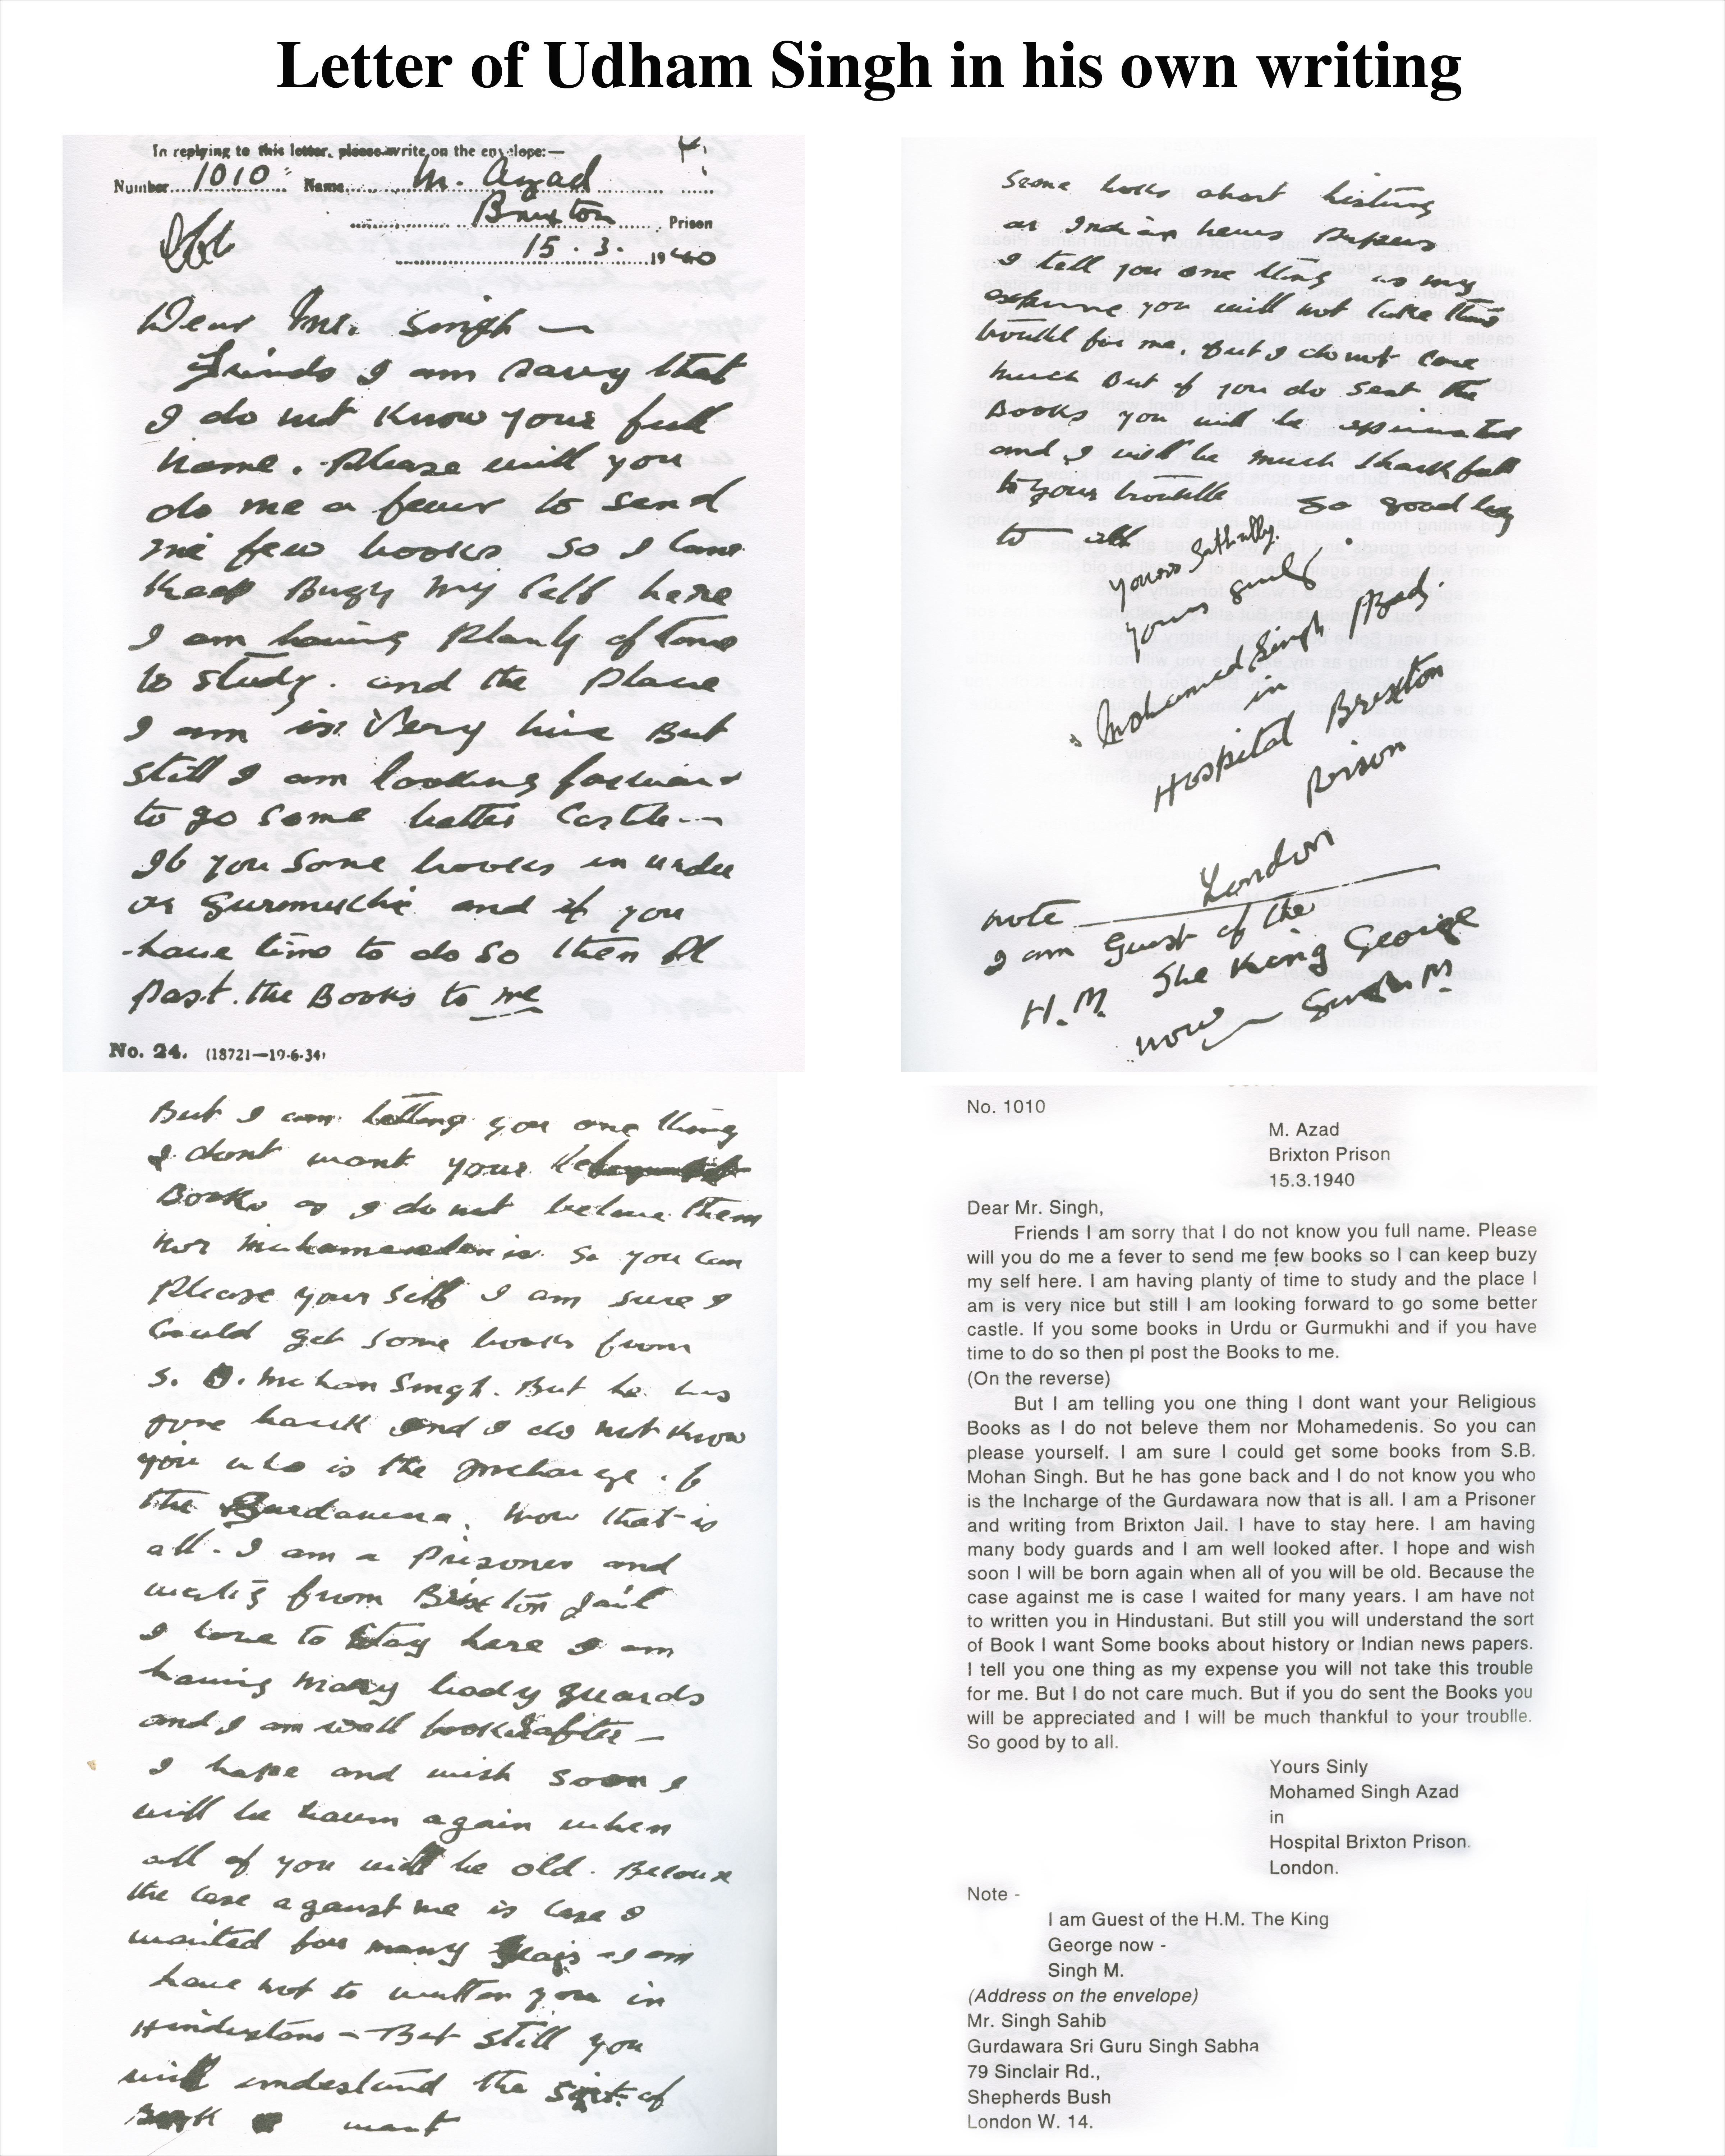 Letter of Udham Singh in his own writing
In replying to this letter, please write on the envelope:—
Number 1010 Name M. Azad
Brixton Prison
15.3.1940
Dear Mr. Singh —
Frinds I am sarry that
I do not Know your full
name. Please will you
do me a fevur to send
me few books so I cane
Keep Buzy my self here
I am having Planty of time
to study. and the Place
I am is Very nice But
still I am looking forward
to go some better Castle —
If you Some books in urdu
or Gurmukhi and if you
have time to do so then Pl
Post. the Books to me
No. 24. (18721—19-6-34)
But I am telling you one thing
I dont want your
Books as I do not beleve them
nor so you can
Please your self I am sure I
Could get some books from
S. B. Mohan Singh. But he has
gone back and I do not know
you who is the Incharge of
the Gurdawara. now that is
all. I am a Prisoner and
from Brixton Jail
I have to stay here I am
having many body guards
and I am well looked after —
I hope and wish soon I
will be again when
all of you will be old. Because
the case against me is case I
waited for many years I am
have not to written you in
Hindustani — But still you
will understand the sort of
Book I want
Some books about history
or Indian news Papers
I tell you one thing as my
expense you will not take this
troubl for me. But I do not care
much But if you do sent the
Books you will be
and I will be much thankfull
to your troublle so good by
to all
yours
yours
Mohamed Singh Azad.
in
Hospital Brixton
Prison
London
note
I am Guest of the
H.M. The King George
now — Singh M.
No. 1010
M. Azad
Brixton Prison
15.3.1940
Dear Mr. Singh,
Friends I am sorry that I do not know you full name. Please
will you do me a fever to send me few books so I can keep buzy
my self here. I am having planty of time to study and the place I
am is very nice but still I am looking forward to go some better
castle. If you some books in Urdu or Gurmukhi and if you have
time to do so then pl post the Books to me.
(On the reverse)
But I am telling you one thing I dont want your Religious
Books as I do not beleve them nor Mohamedenis. So you can
please yourself. I am sure I could get some books from S.B.
Mohan Singh. But he has gone back and I do not know you who
is the Incharge of the Gurdawara now that is all. I am a Prisoner
and writing from Brixton Jail. I have to stay here. I am having
many body guards and I am well looked after. I hope and wish
soon I will be born again when all of you will be old. Because the
case against me is case I waited for many years. I am have not
to written you in Hindustani. But still you will understand the sort
of Book I want Some books about history or Indian news papers.
I tell you one thing as my expense you will not take this trouble
for me. But I do not care much. But if you do sent the Books you
will be appreciated and I will be much thankful to your troublle.
So good by to all.
Yours Sinly
Mohamed Singh Azad
in
Hospital Brixton Prison.
London.
Note -
I am Guest of the H.M. The King
George now -
Singh M.
(Address on the envelope)
Mr. Singh Sahib
Gurdawara Sri Guru Singh Sabha
79 Sinclair Rd.,
Shepherds Bush
London W. 14.